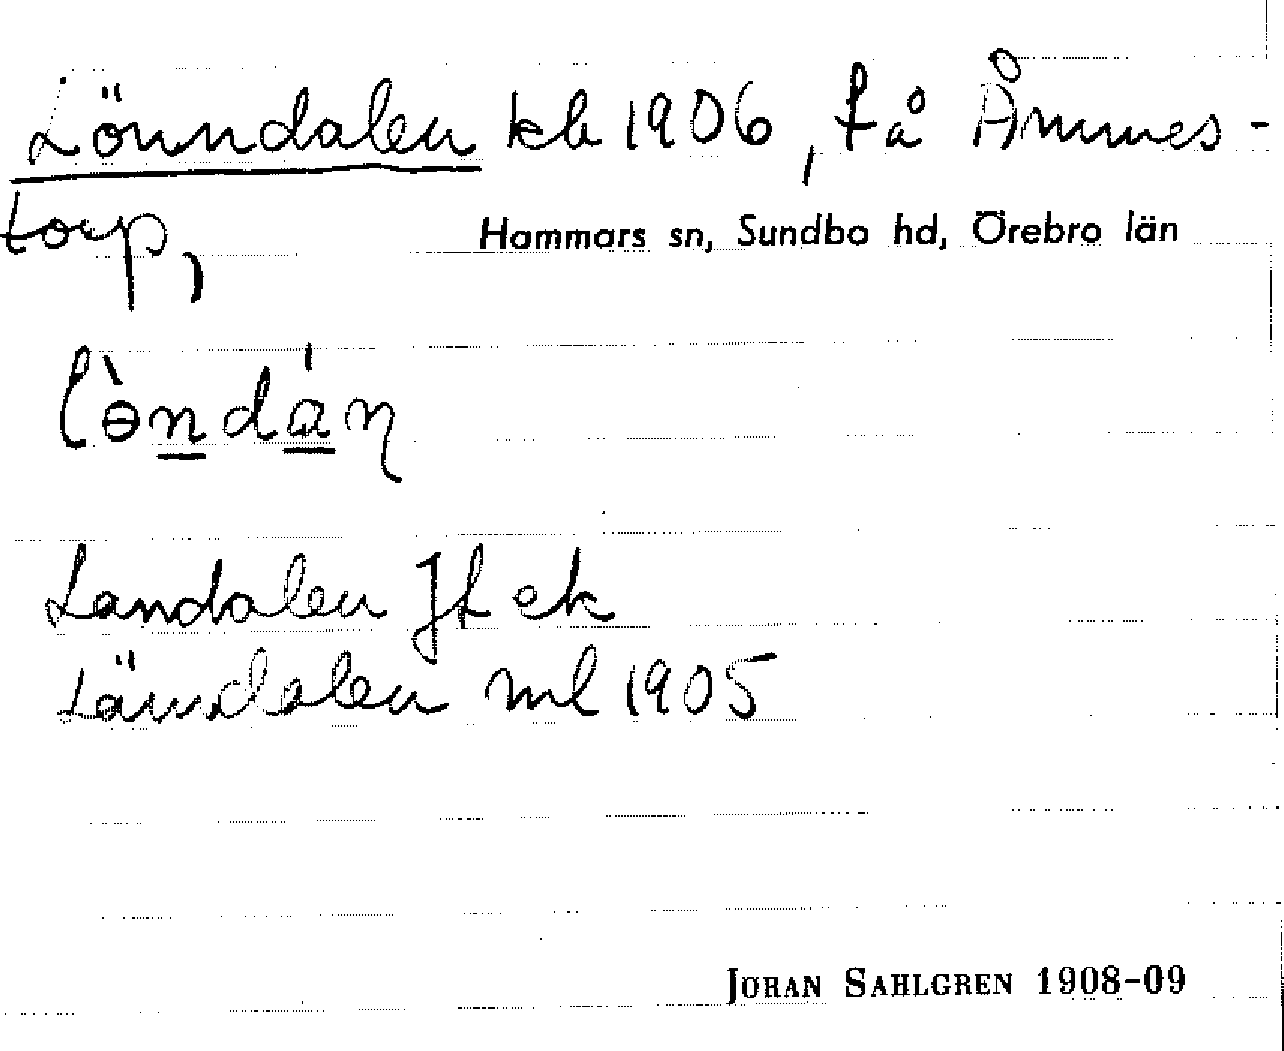 Lönndalen kb 1906, t å Åmmes-
torp,
Hammars sn, Sundbo hd, Örebro län
lɵ̀ndán
Landalen Jf ek
Ländalen ml 1905
JÖRAN SAHLGREN 1908-09